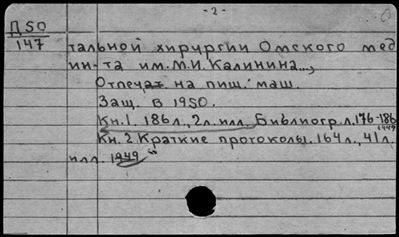 - 2 -
Д50
147
тальной хирургии Омского мед
ин-та им. М.И. Калинина...,
Отпечат. на пиш. маш.
Защ. в 1950.
Кн.1. 186л., 2л. илл. Библиогр. л. 176-186
Кн. 2. Краткие протоколы. 164л., 41л.
илл. 1949